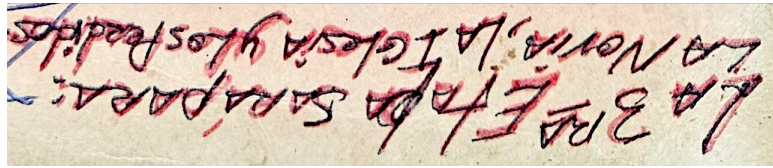 LA 3RA ETAPA SARA PARA:
LA NOVIA, LA IGLESIA y Los Perdidos